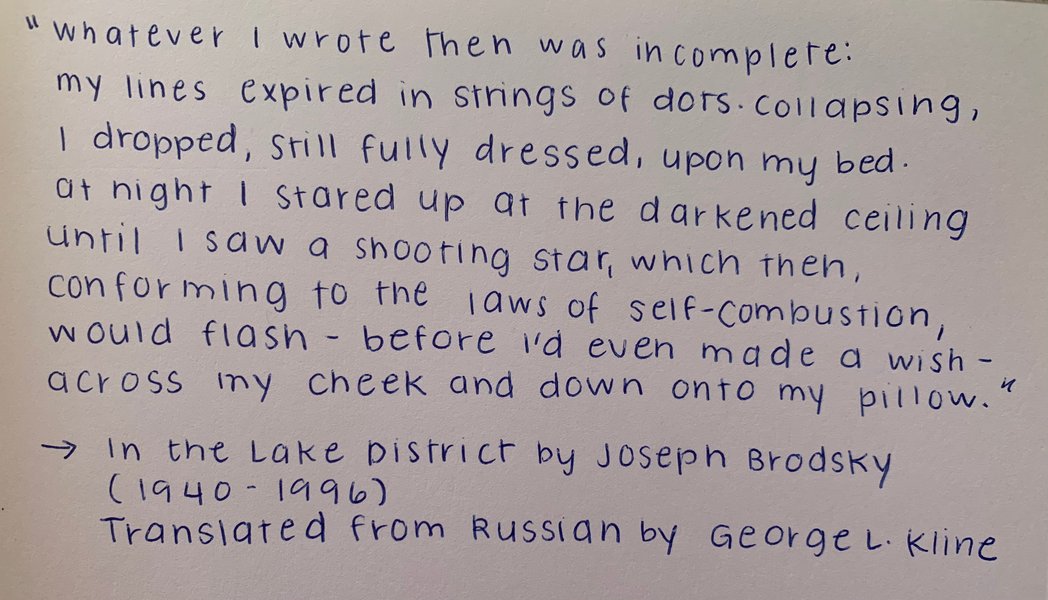 "whatever I wrote then was incomplete:
my lines expired in strings of dots. collapsing,
I dropped, still fully dressed, upon my bed.
at night I stared up at the darkened ceiling
until I saw a shooting star, which then,
conforming to the laws of self-combustion,
would flash - before I'd even made a wish -
across my cheek and down onto my pillow."
→ In the Lake District by Joseph Brodsky
(1940-1996)
Translated from Russian by George L. Kline